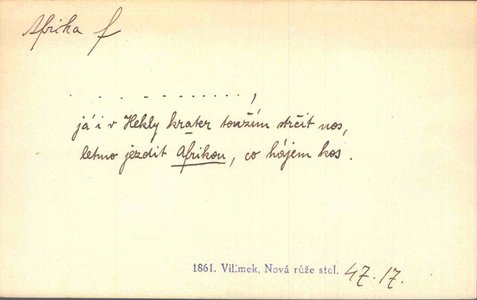 Afrika f
. . . . . . . . . . . . ,
já i v Hekly krater toužím strčit nos,
letmo jezdit Afrikou, co hájem kos.
1861. Vilímek, Nová růže stol. 47.17.